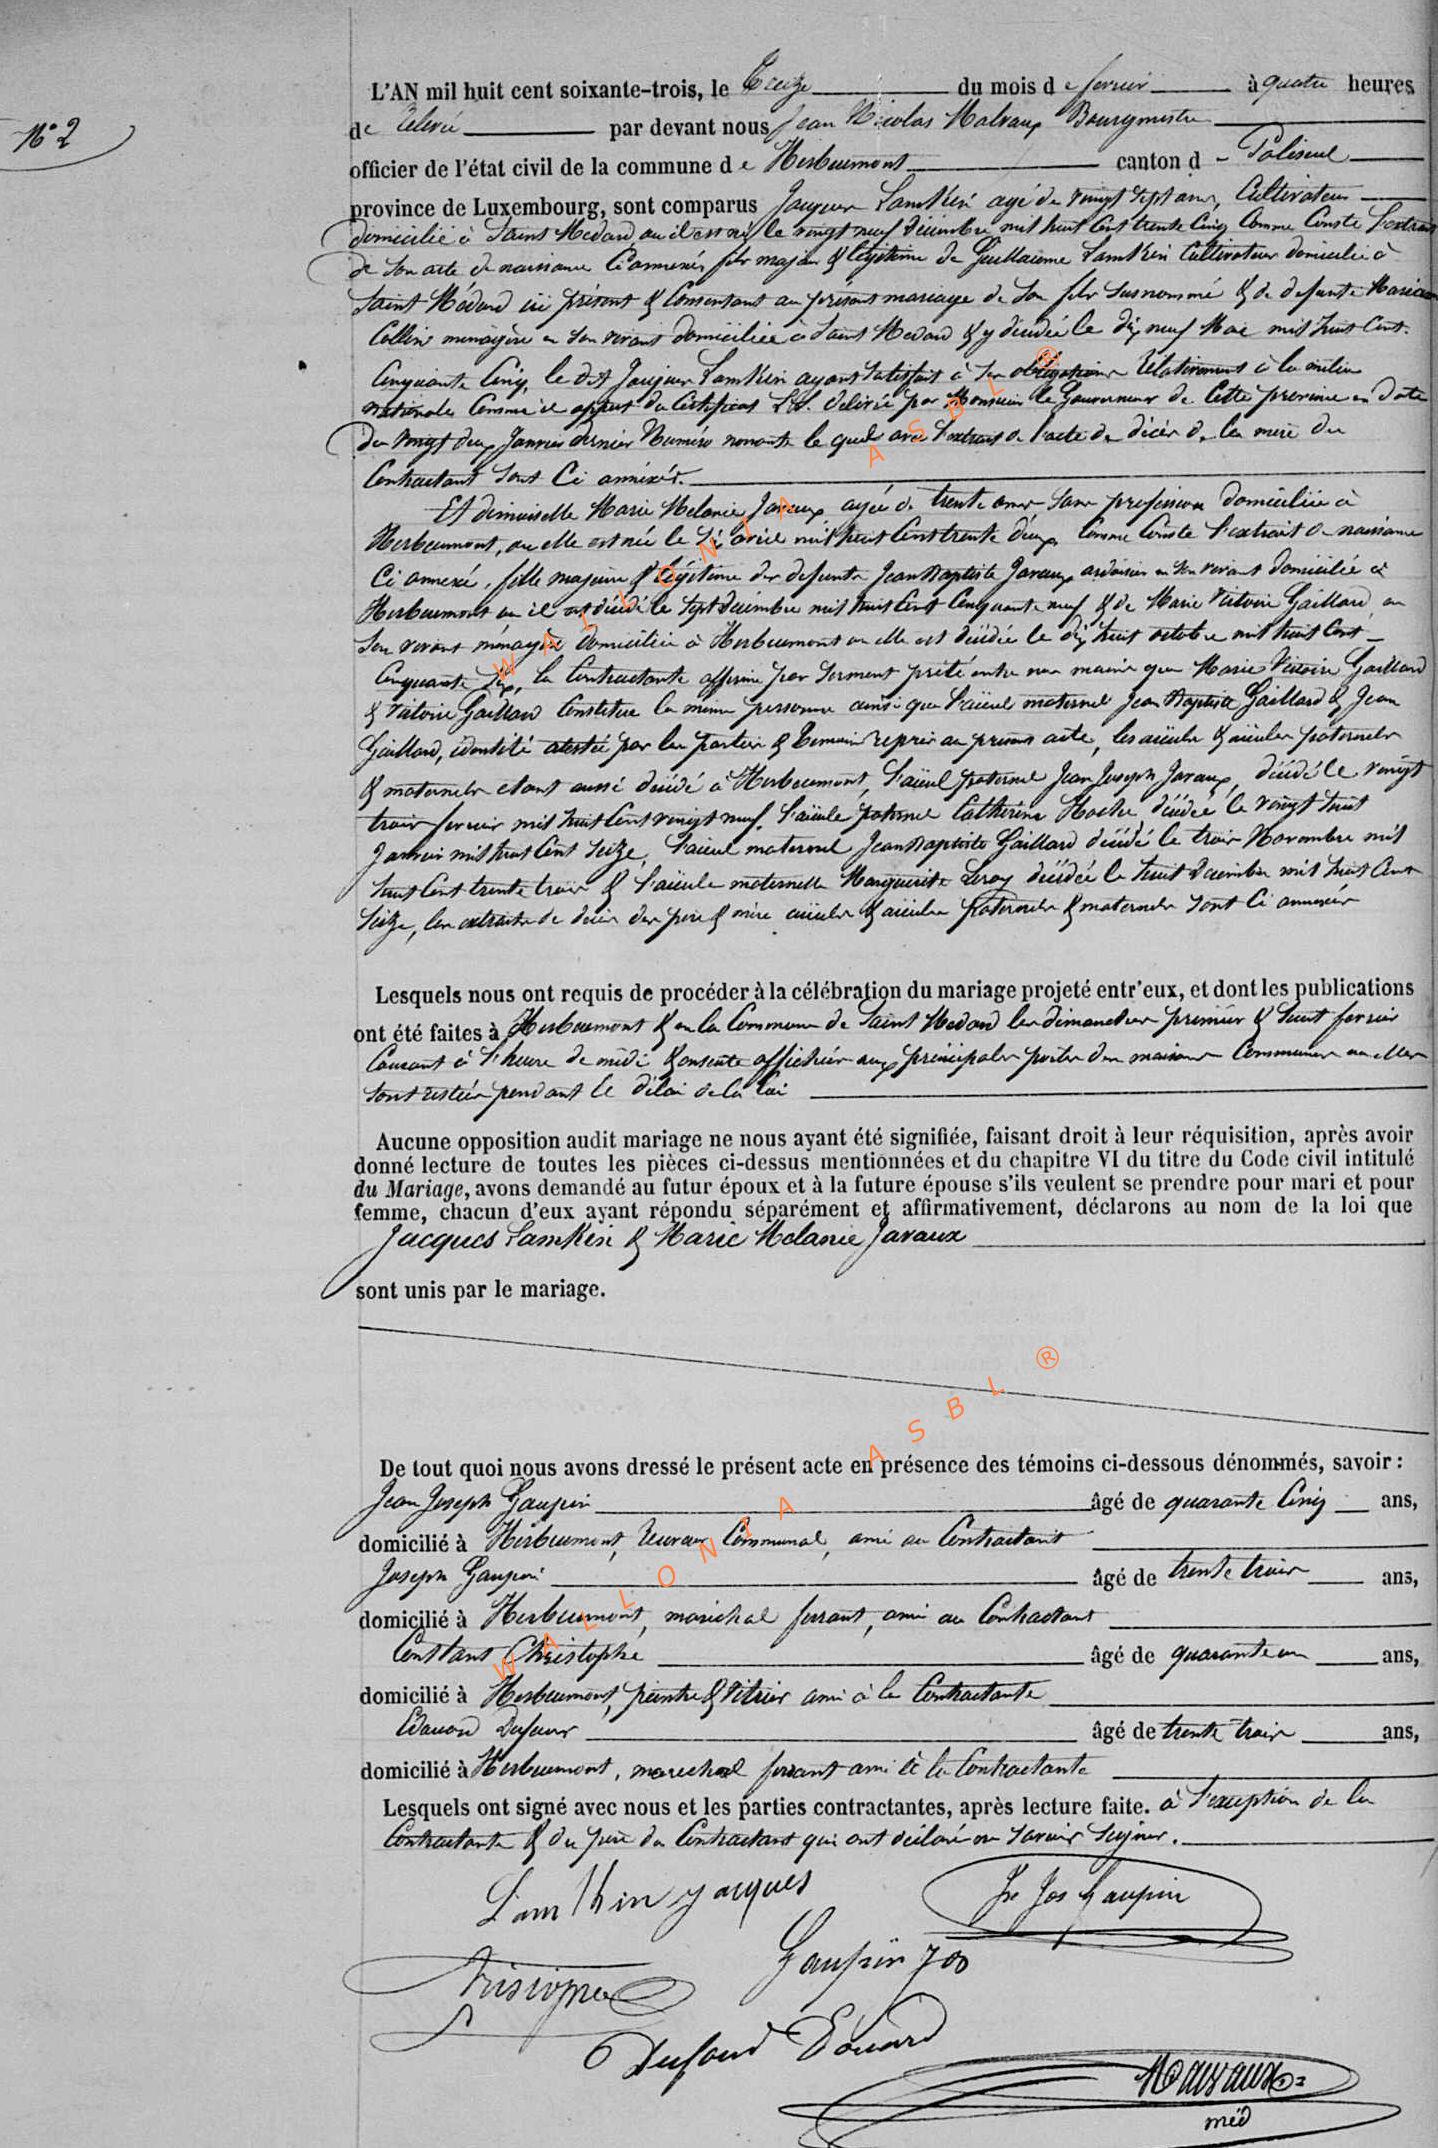 N° 2
L'AN mil huit cent soixante-trois, le treize du mois de fevrier à quatre heures
de relevée par devant nous Jean Nicolas Malvaux Bourgmestre
officier de l'état civil de la commune de Herbeumont canton d - Paliseul
province de Luxembourg, sont comparus Jacques Lamkin agé de vingt sept ans, Cultivateur
domicilié à Saint Medard, ou il est né le vingt neuf décembre mil huit Cent trente Cinq Comme Conste l'extrait
de son acte de naissance Ci annexé, fils majeur & légitime de Guillaume Lamkin Cultivateur domicilié à
Saint Médard ici présent & Consentant au présent mariage de son fils susnommé & de defunte
Collin ménagère en son vivant domiciliée à Saint Medard & y décédée le dix neuf Mai mil huit Cent
Cinquante Cinq, le dit Jacques Lamkin ayant satisfait à ses obligations rélativement à la milice
nationale Comme il appert du Certificat L.L. délivré par Monsieur le Gouverneur de Cette province en date
du vingt deux Janvier dernier Numéro nonante le quel avec l'extrait de l'acte de décès de la mère du
Contractant sont Ci annéxés.
Et dimoiselle Marie Melanie Javaux agée de trente ans sans profession domiciliée à
Herbeumont, ou elle est née le six avril mil huit Cent trente deux Comme Conste l'extrait de naissance
Ci annexé, fille majeure & légitime des defunts Jean Baptiste Javaux ardoisier en son vivant domicilié à
Herbeumont ou il est décédé le sept décembre mil huit Cent Cinquante neuf & de Marie Victoire Gaillard en
son vivant ménagère domiciliée à Herbeumont ou elle est décédée le dix huit octobre mil huit Cent
Cinquante six, la Contractante affirme par serment prêté entre nos mains que Marie Victoire Gaillard
& Victoire Gaillard Constitue la même personne ainsi que l'aïeul maternel Jean Baptiste Gaillard & Jean
Gaillard, identité attestée par les parties & temoins repris au présent acte, les aïeuls & aïeules paternels
& maternels etant aussi décédé à Herbeumont, l'aïeul paternel Jean Joseph Javaux décédé le vingt
trois fevrier mil huit Cent vingt neuf, l'aïeule paternel Catherine Roche décédée le vingt huit
Janvier mil huit Cent seize, l'aïeul maternel Jean Baptiste Gaillard décédé le trois Novembre mil
huit Cent trente trois & l'aïeule maternelle Marguerite Leroy décédée le huit Décembre mil huit Cent
seize, les extraits de décès des père & mère aïeuls & aïeules paternels & maternels sont Ci annexés
Lesquels nous ont requis de procéder à la célébration du mariage projeté entr'eux, et dont les publications
ont été faites à Herbeumont & en la Commune de Saint Medard les dimanches premier & huit fevrier
Courant à l'heure de midi & ensuite affichées aux principales portes des maisons Communes ou elles
sont restées pendant le délai de la loi
Aucune opposition audit mariage ne nous ayant été signifiée, faisant droit à leur réquisition, après avoir
donné lecture de toutes les pièces ci-dessus mentionnées et du chapitre VI du titre du Code civil intitulé
du Mariage, avons demandé au futur époux et à la future épouse s'ils veulent se prendre pour mari et pour
femme, chacun d'eux ayant répondu séparément et affirmativement, déclarons au nom de la loi que
Jacques Lamkin & Marie Melanie Javaux
sont unis par le mariage.
De tout quoi nous avons dressé le présent acte en présence des témoins ci-dessous dénommés, savoir :
Jean Joseph Gaupin âgé de quarante Cinq ans,
domicilié à Herbeumont, receveur Communal, ami au Contractant
Joseph Gaupin âgé de trente trois ans,
domicilié à Herbeumont, maréchal ferrant, ami au Contractant
Constant Christophe âgé de quarante un ans,
domicilié à Herbeumont, peintre & vitrier ami à la Contractante
Edouard Dufour âgé de trente trois ans,
domicilié à Herbeumont, marechal ferrant ami à la Contractante
Lesquels ont signé avec nous et les parties contractantes, après lecture faite. à l'exception de la
Contractante & du père du Contractant qui ont déclaré ne savoir signer.
Lamkin jacques
Jn Jos Gaupin
Gaupin Jos
Dufour Edouard
Malvaux
WALLONIA ASBL ®
WALLONIA ASBL ®